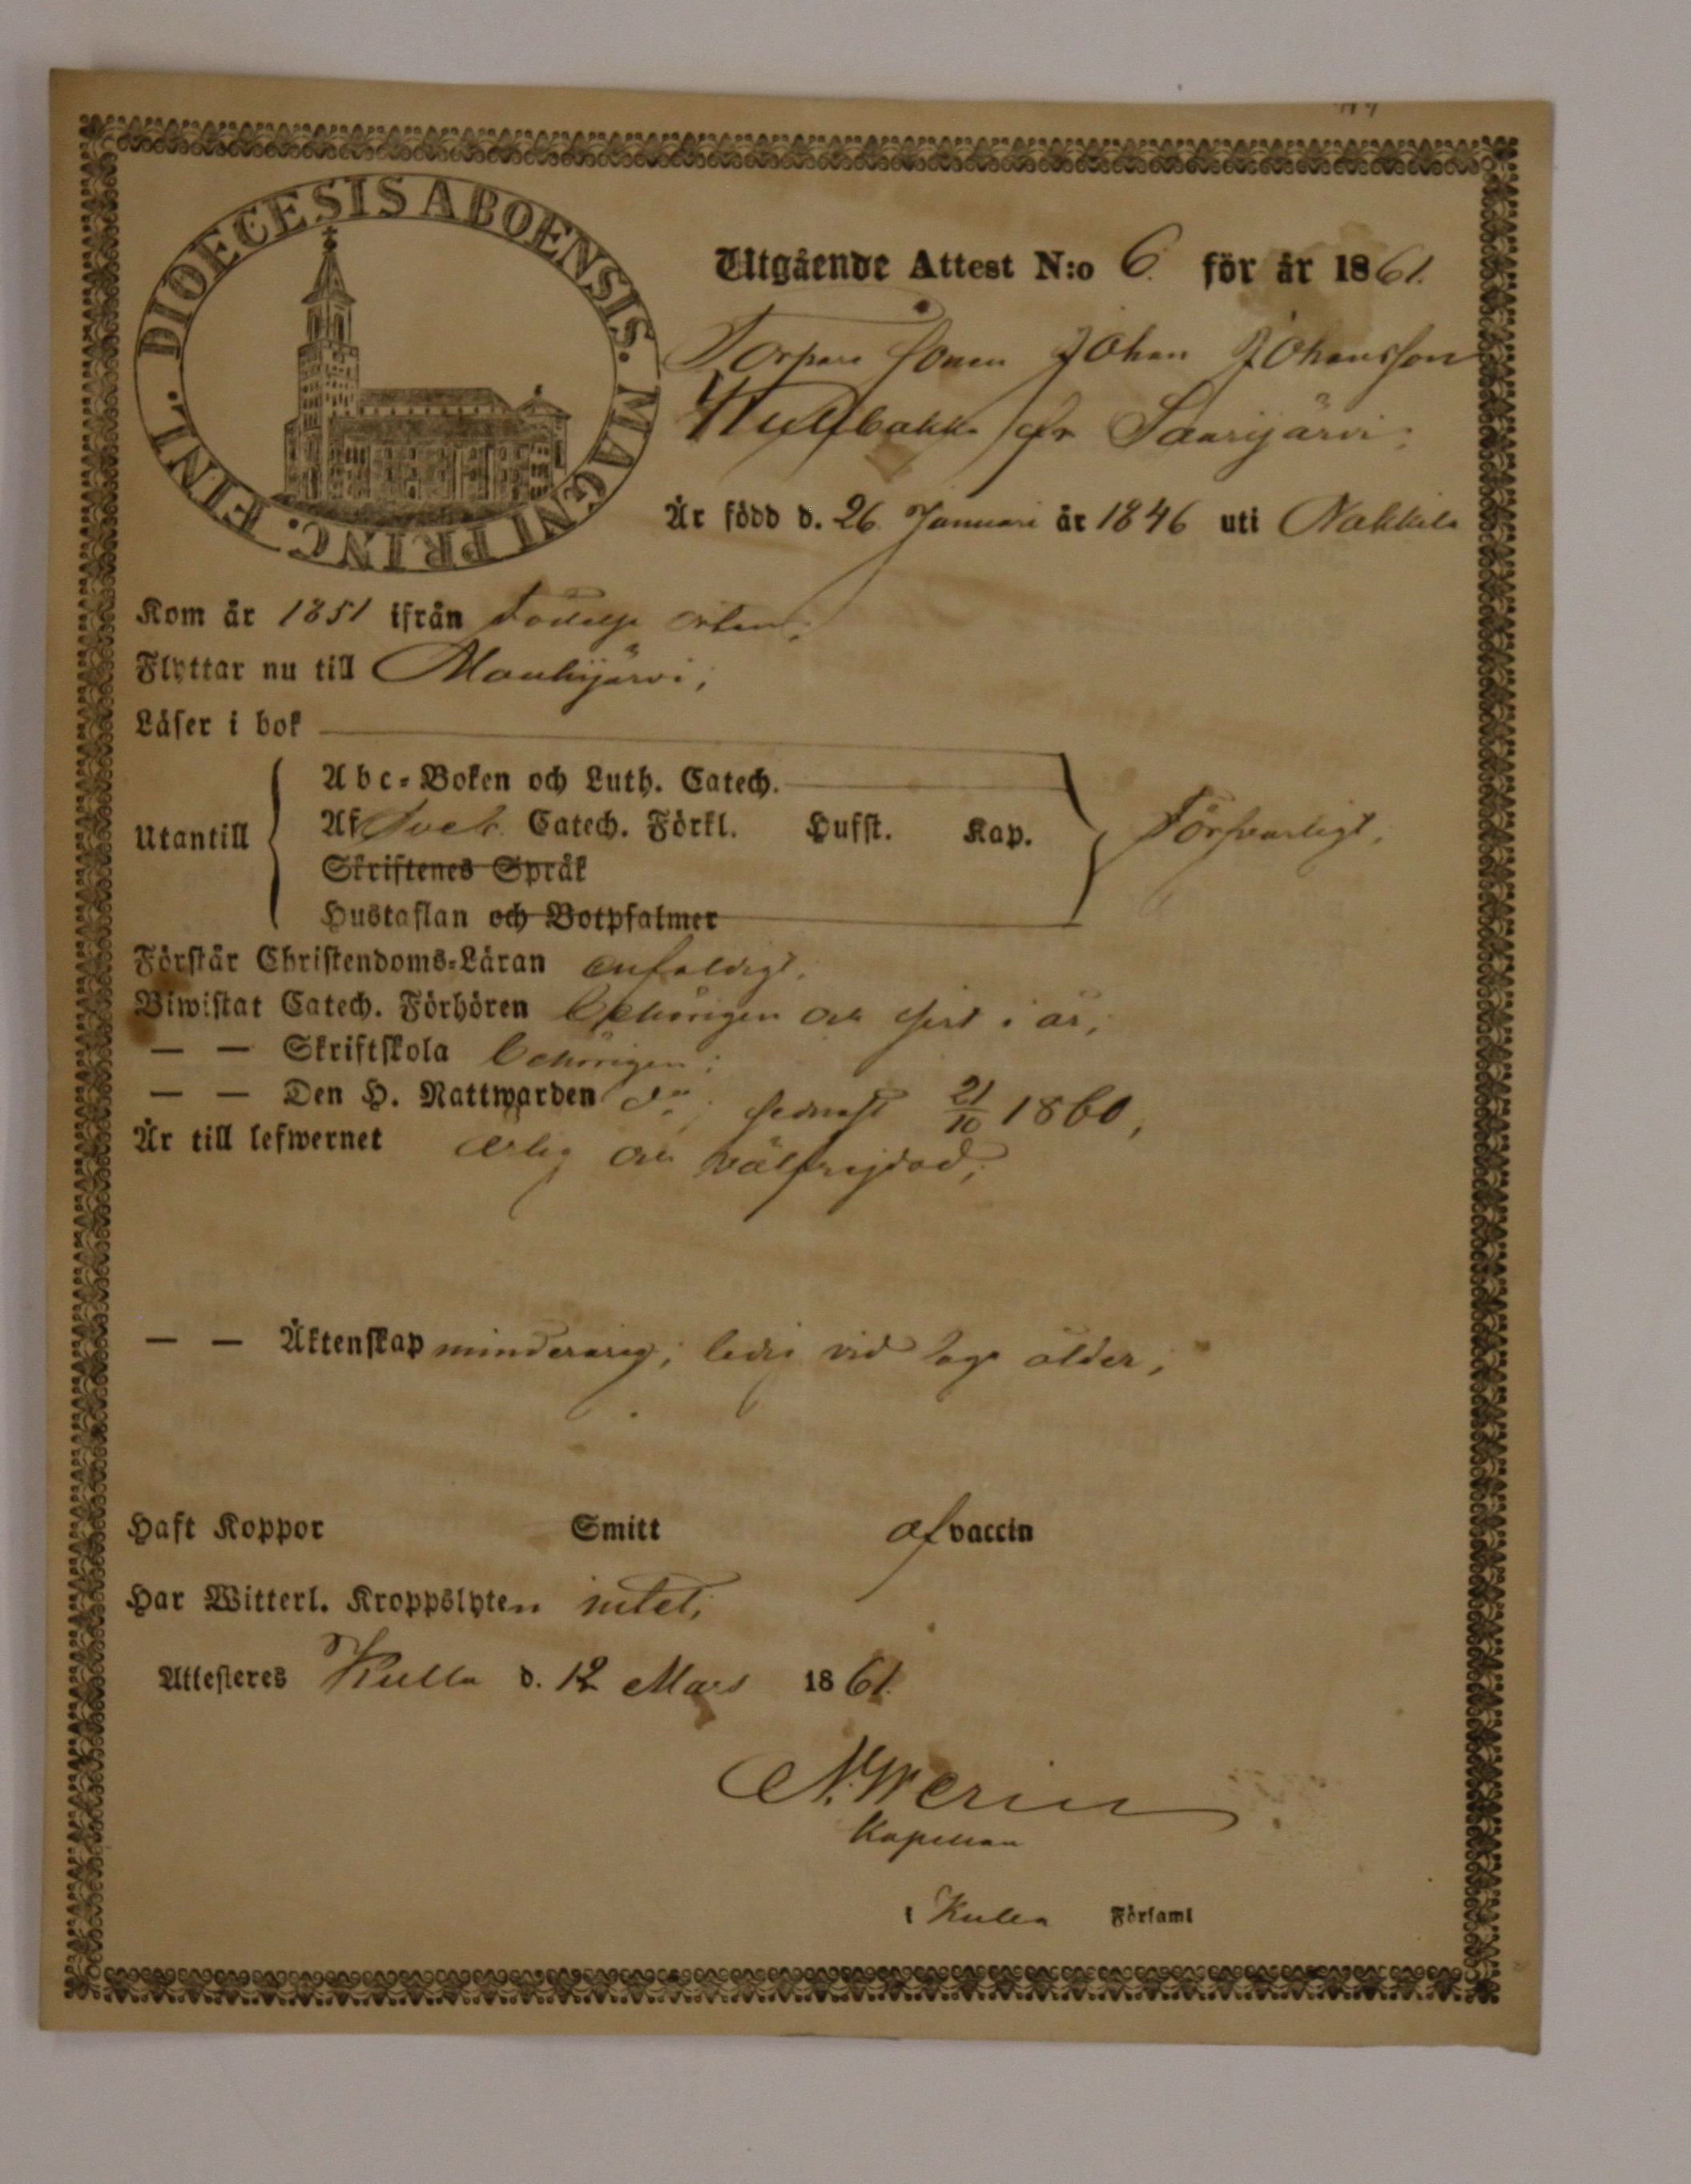 DIOECESIS ABOENSIS. MAGNI PRINC. FINL.
Utgående Attest N:o 6. för år 1861.
Torpare sonen Johan Johansson
Kullbakka från Saarijärvi;
Är född d. 26. Januari år 1846 uti Nakkila
Kom år 1851 ifrån Födelse orten;
Flyttar nu till Mouhijärvi;
Läser i bok
Utantill
Abc-Boken och Luth. Catech.
Af Sveb. Catech. Förkl. Hufst. Kap.
Försvarligt;
Skriftenes Språk
Hustaflan och Botpsalmer
Förstår Christendoms-Läran enfaldigt;
Biwistat Catech. Förhören behörigen och sist i år;
— — Skriftskola behörigen;
— — Den H. Nattwarden do; sednast 21/10 1860,
Är till lefwernet ärlig och välfrejdad;
— — Äktenskap minderårig; ledig vid laga ålder;
Haft Koppor Smitt af vaccin
Har Witterl. Kroppslyten intet;
Attesteres Kulla d. 12 Mars 1861.
N. Werin
Kapellan
i Kulla Församl